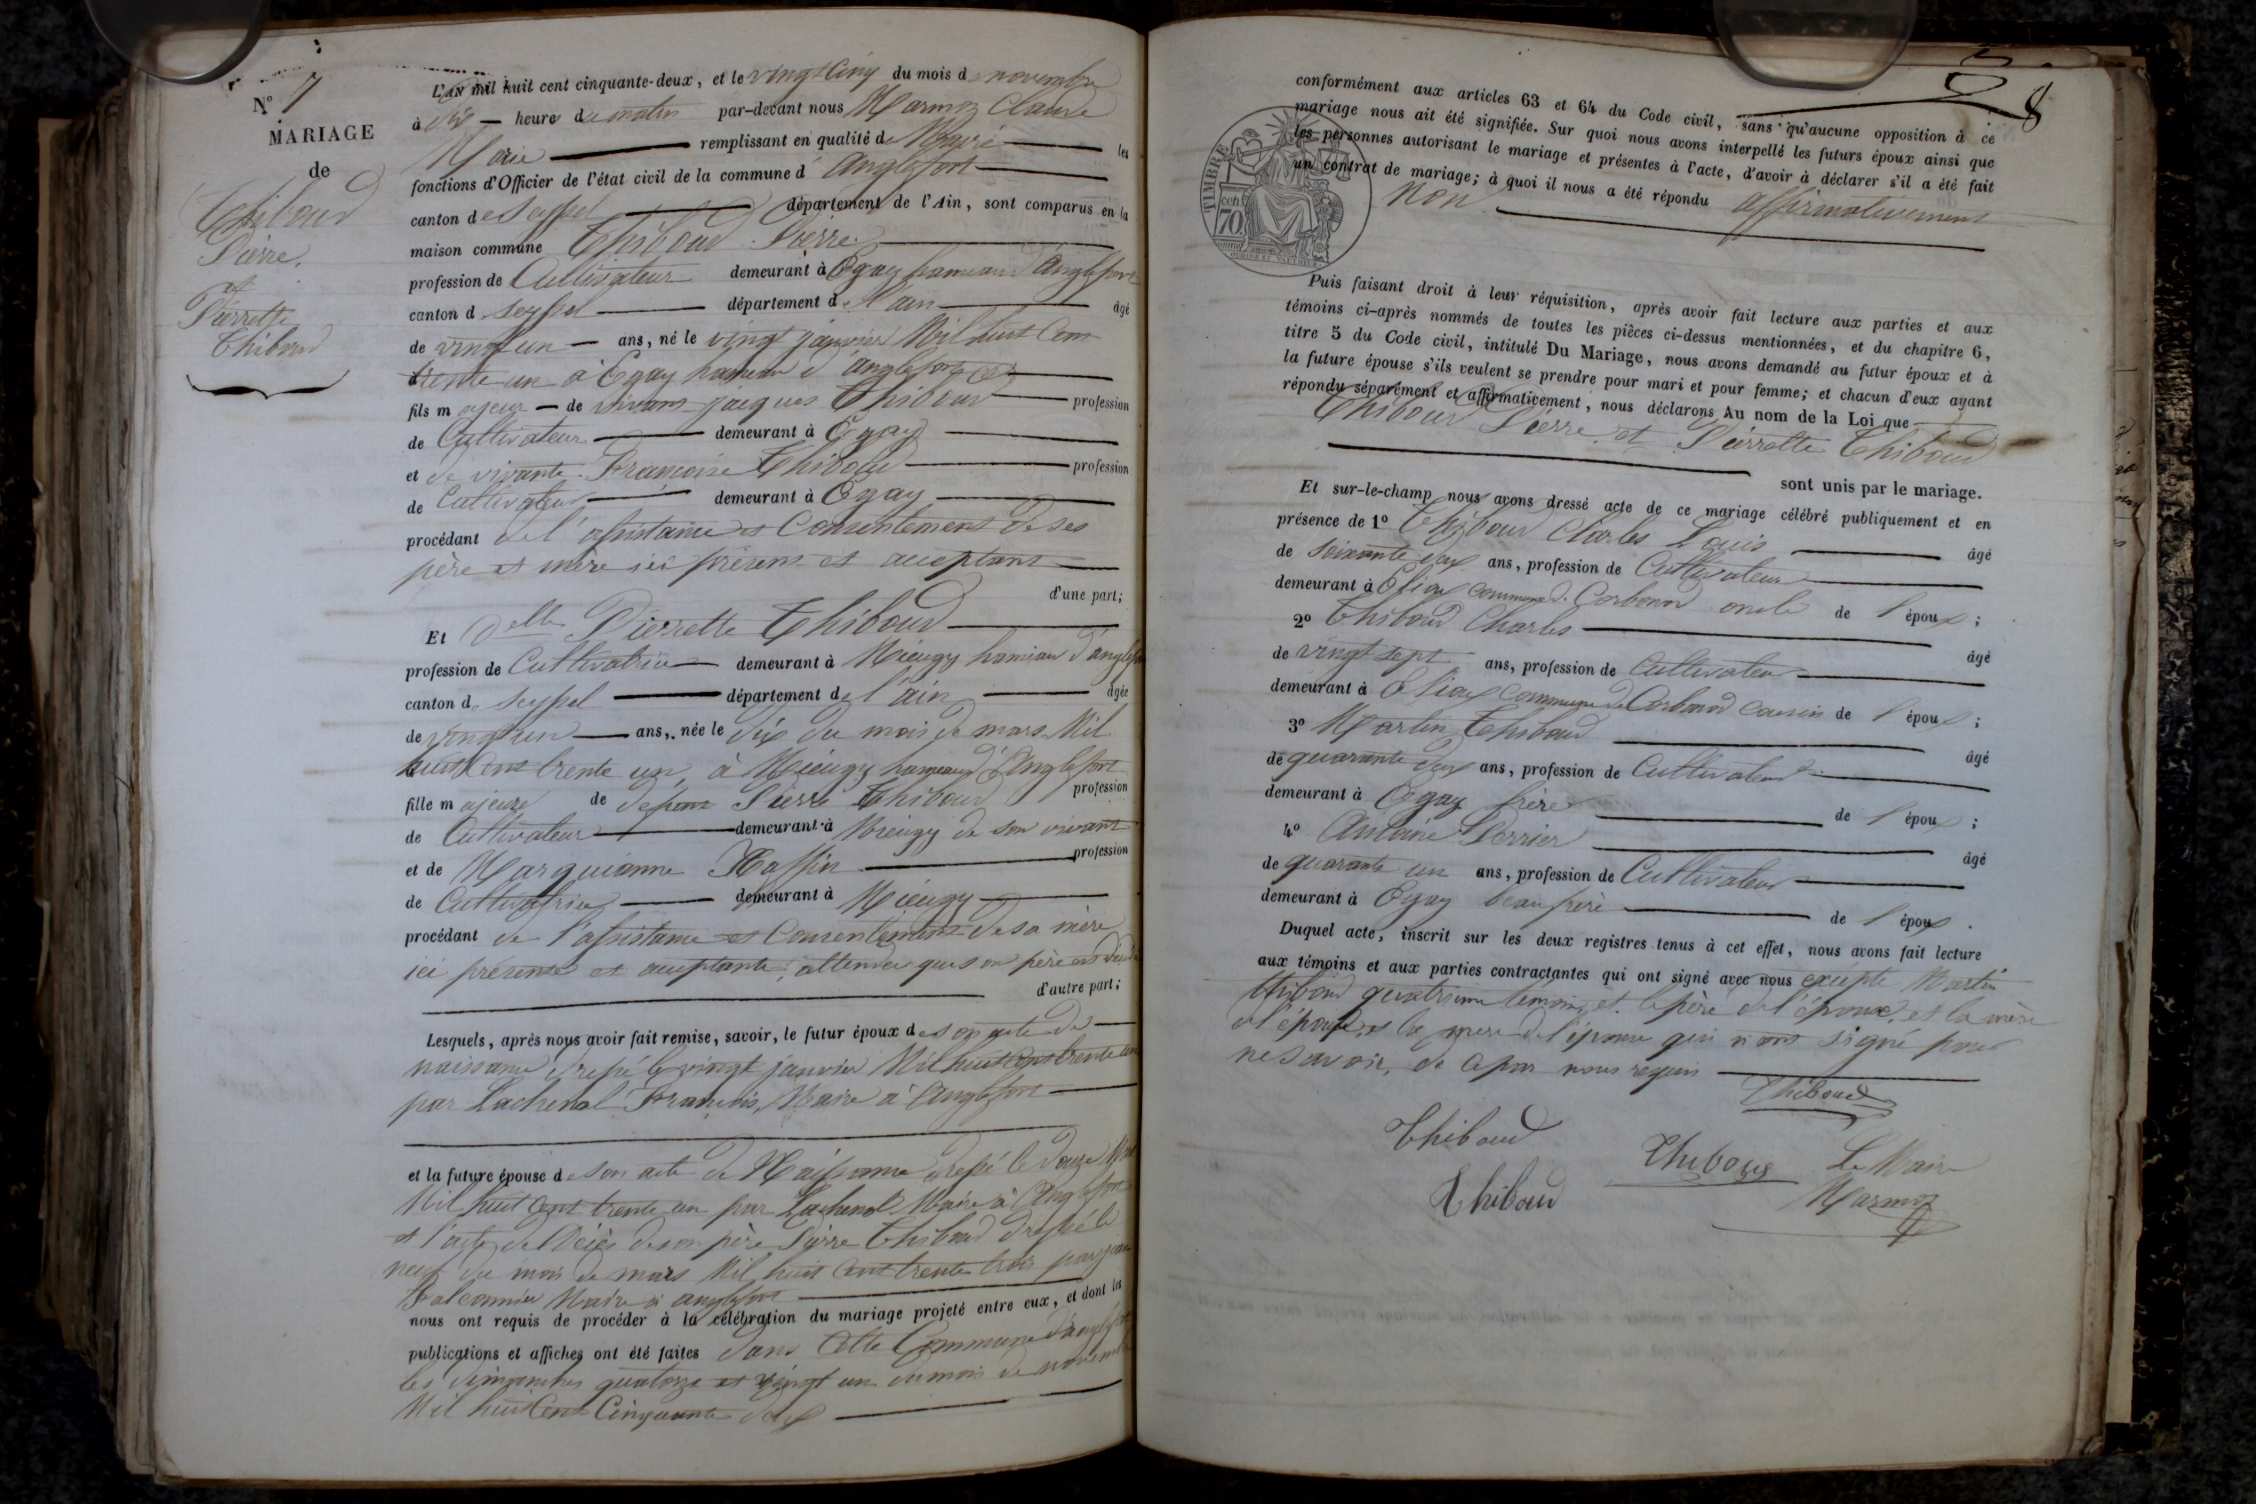 N° 7
MARIAGE
de
Thiboud
Pierre
et
Pierrette
Thiboud
L'AN mil huit cent cinquante-deux, et le vingt Cinq du mois de novembre
à dix heures du matin par-devant nous Marmoz Claude
Marie remplissant en qualité de Maire les
fonctions d'Officier de l'état civil de la commune d'anglefort
canton de Seyssel département de l'Ain, sont comparus en la
maison commune Thiboud Pierre
profession de Cultivateur demeurant à Egay hameau d'anglefort
canton de Seyssel département de l'ain âgé
de vingt un ans, né le vingt janvier Mil huit Cent
trente un à Egay hameau d'anglefort
fils majeur de vivant jacques Thiboud profession
de Cultivateur demeurant à Egay
et de vivante Françoise Thiboud profession
de Cultivateur demeurant à Egay
procédant de l'assistance et Consentement de ses
père et mère ici présens et acceptans
d'une part;
Et Delle Pierrette Thiboud
profession de Cultivatrice demeurant à Mieugy hameau d'anglefort
canton de Seyssel département de l'ain âgée
de vingt un ans, née le dix du mois de mars Mil
huit Cent trente un, à Mieugy hameau d'Anglefort
fille majeure de défunt Pierre Thiboud profession
de Cultivateur demeurant à Mieugy de son vivant
et de Marguianne profession
de Cultivatrice demeurant à Mieugy
procédant de l'assistance et Consentement de sa mère
ici présente et acceptante, attendu que son père est
d'autre part;
Lesquels, après nous avoir fait remise, savoir, le futur époux de son acte de
naissance dressé le vingt janvier Mil huit Cent trente un
par Lachenal François, Maire à Anglefort
et la future épouse de son acte de Naissance dressé le douze Mars
Mil huit Cent trente un par Lachenal Maire à Anglefort
et l'acte de Décès de son père Pierre Thiboud dressé le
neuf du mois de mars Mil huit Cent trente trois par
Falconnier Maire à anglefort
nous ont requis de procéder à la célébration du mariage projeté entre eux, et dont les
publications et affiches ont été faites dans Cette Commune d'anglefort
les dimanches quatorze et vingt un du mois de novembre
Mil huit Cent Cinquante deux
8
conformément aux articles 63 et 64 du Code civil, sans qu'aucune opposition à ce
mariage nous ait été signifiée. Sur quoi nous avons interpellé les futurs époux ainsi que
les personnes autorisant le mariage et présentes à l'acte, d'avoir à déclarer s'il a été fait
un contrat de mariage; à quoi il nous a été répondu affirmativement
non
TIMBRE
70 cent
Puis faisant droit à leur réquisition, après avoir fait lecture aux parties et aux
témoins ci-après nommés de toutes les pièces ci-dessus mentionnées, et du chapitre 6,
titre 5 du Code civil, intitulé Du Mariage, nous avons demandé au futur époux et à
la future épouse s'ils veulent se prendre pour mari et pour femme; et chacun d'eux ayant
répondu séparément et affirmativement, nous déclarons Au nom de la Loi que
Thiboud Pierre et Pierrette Thiboud
sont unis par le mariage.
Et sur-le-champ nous avons dressé acte de ce mariage célébré publiquement et en
présence de 1° Thiboud Charles Louis âgé
de soixante deux ans, profession de Cultivateur
demeurant à commune de Corbonod oncle de l'époux;
2° Thiboud Charles âgé
de vingt sept ans, profession de Cultivateur
demeurant à commune de Corbonod cousin de l'époux;
3° Martin Thiboud âgé
de quarante deux ans, profession de Cultivateur
demeurant à Egay frère de l'époux;
4° Antoine Perrier âgé
de quarante un ans, profession de Cultivateur
demeurant à Egay beau frère de l'époux.
Duquel acte, inscrit sur les deux registres tenus à cet effet, nous avons fait lecture
aux témoins et aux parties contractantes qui ont signé avec nous excepté Martin
Thiboud quatrième témoin, et le père de l'époux, et la mère
de l'époux, et la mère de l'épouse qui n'ont signé pour
ne savoir, de ce par nous requis
Thiboud
Thiboud
Thiboud
Le Maire
Thiboud
Marmoz